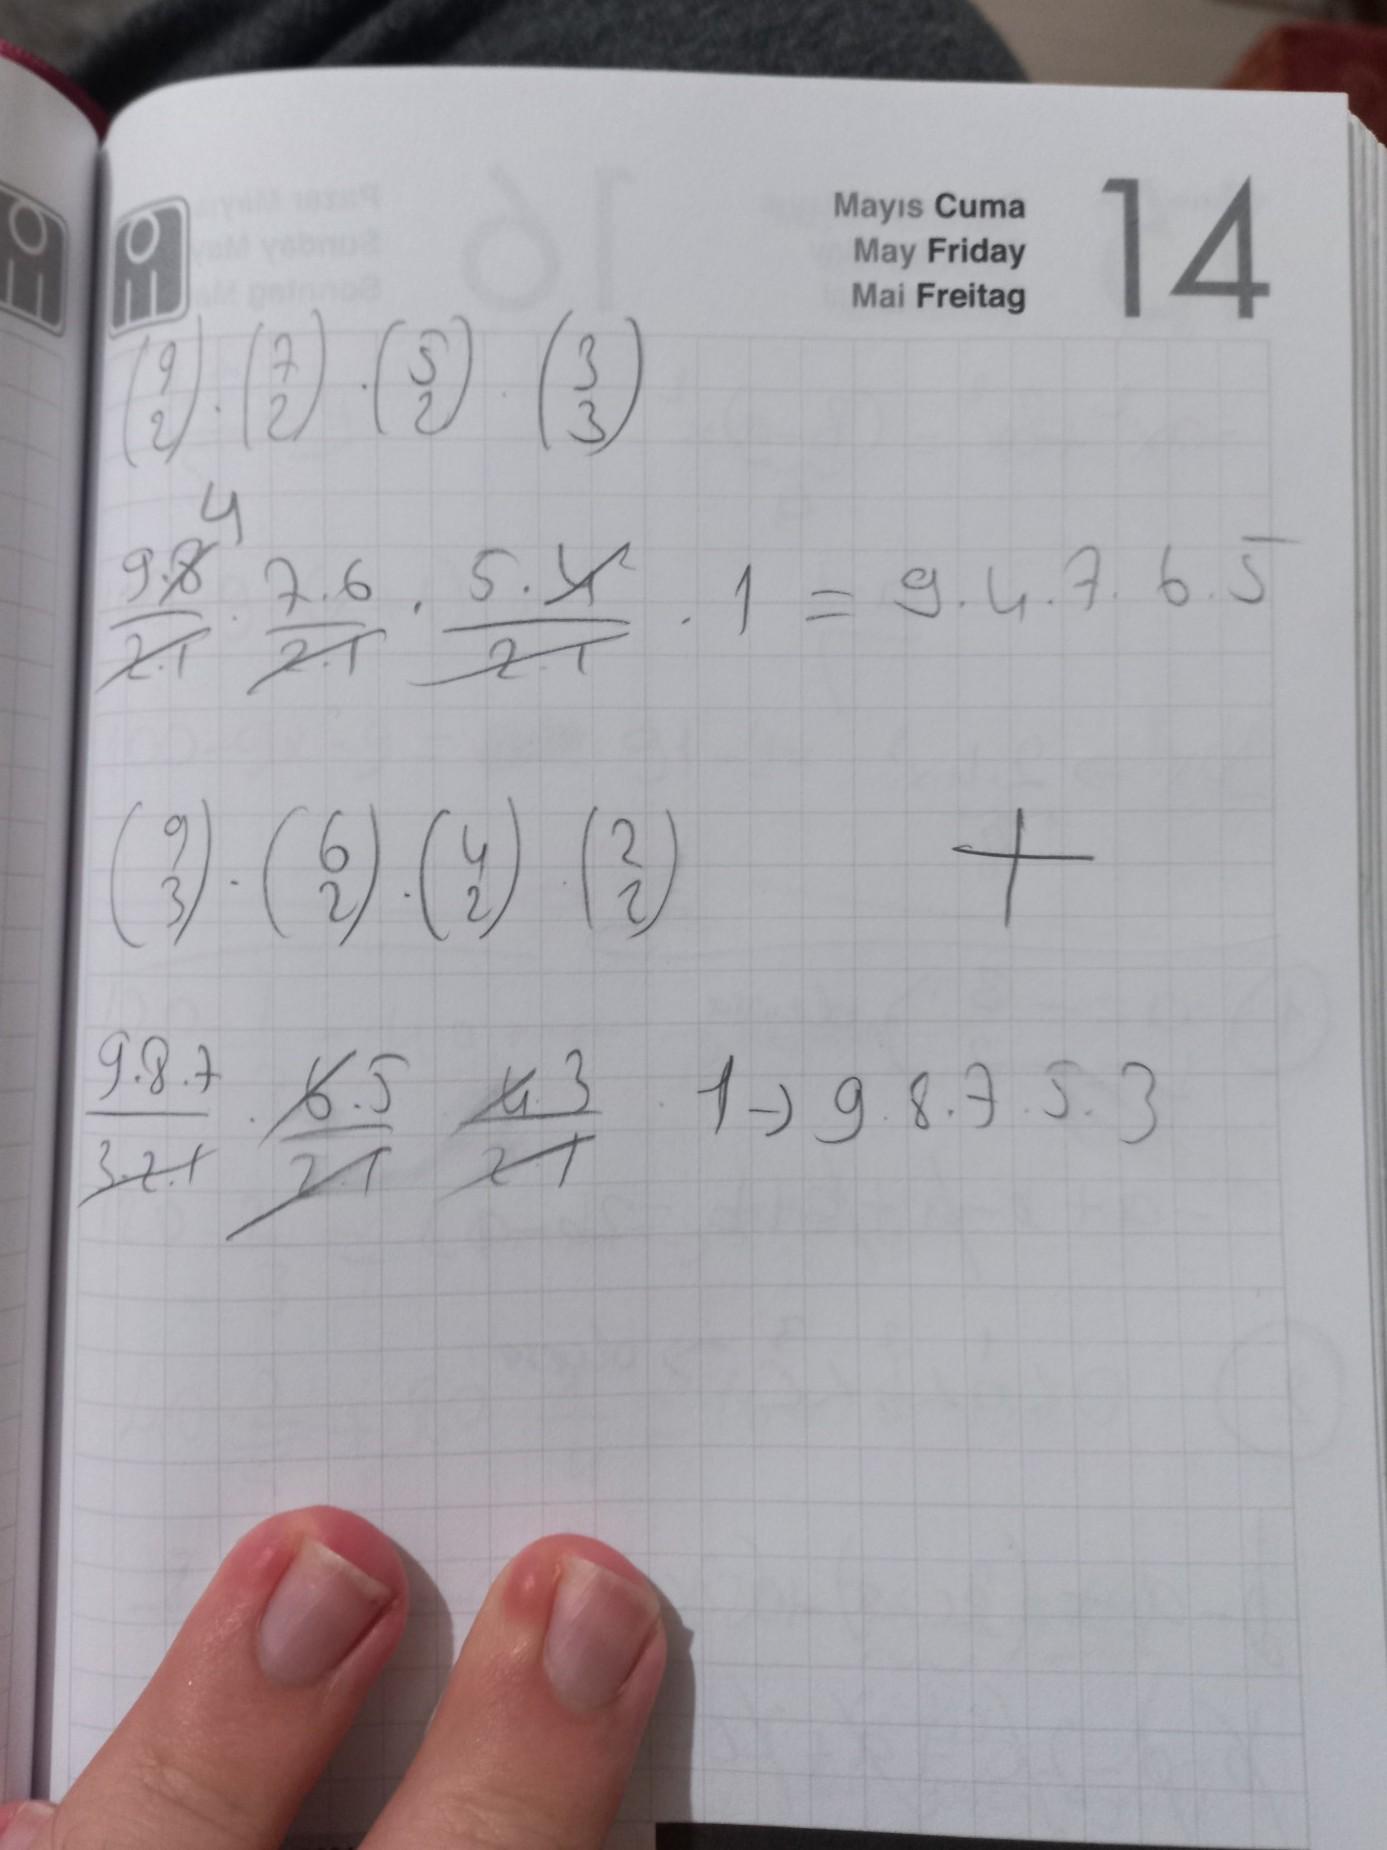 Mayıs Cuma
May Friday
Mai Freitag
14
(9 2) . (7 2) . (5 2) . (3 3)
4
9.8/2.1 . 7.6/2.1 . 5.4²/2.1 . 1 = 9.4.7.6.5
(9 3) . (6 2) . (4 2) . (2 2)
+
9.8.7/3.2.1 . 6.5/2.1 4.3/2.1 . 1 → 9.8.7.5.3